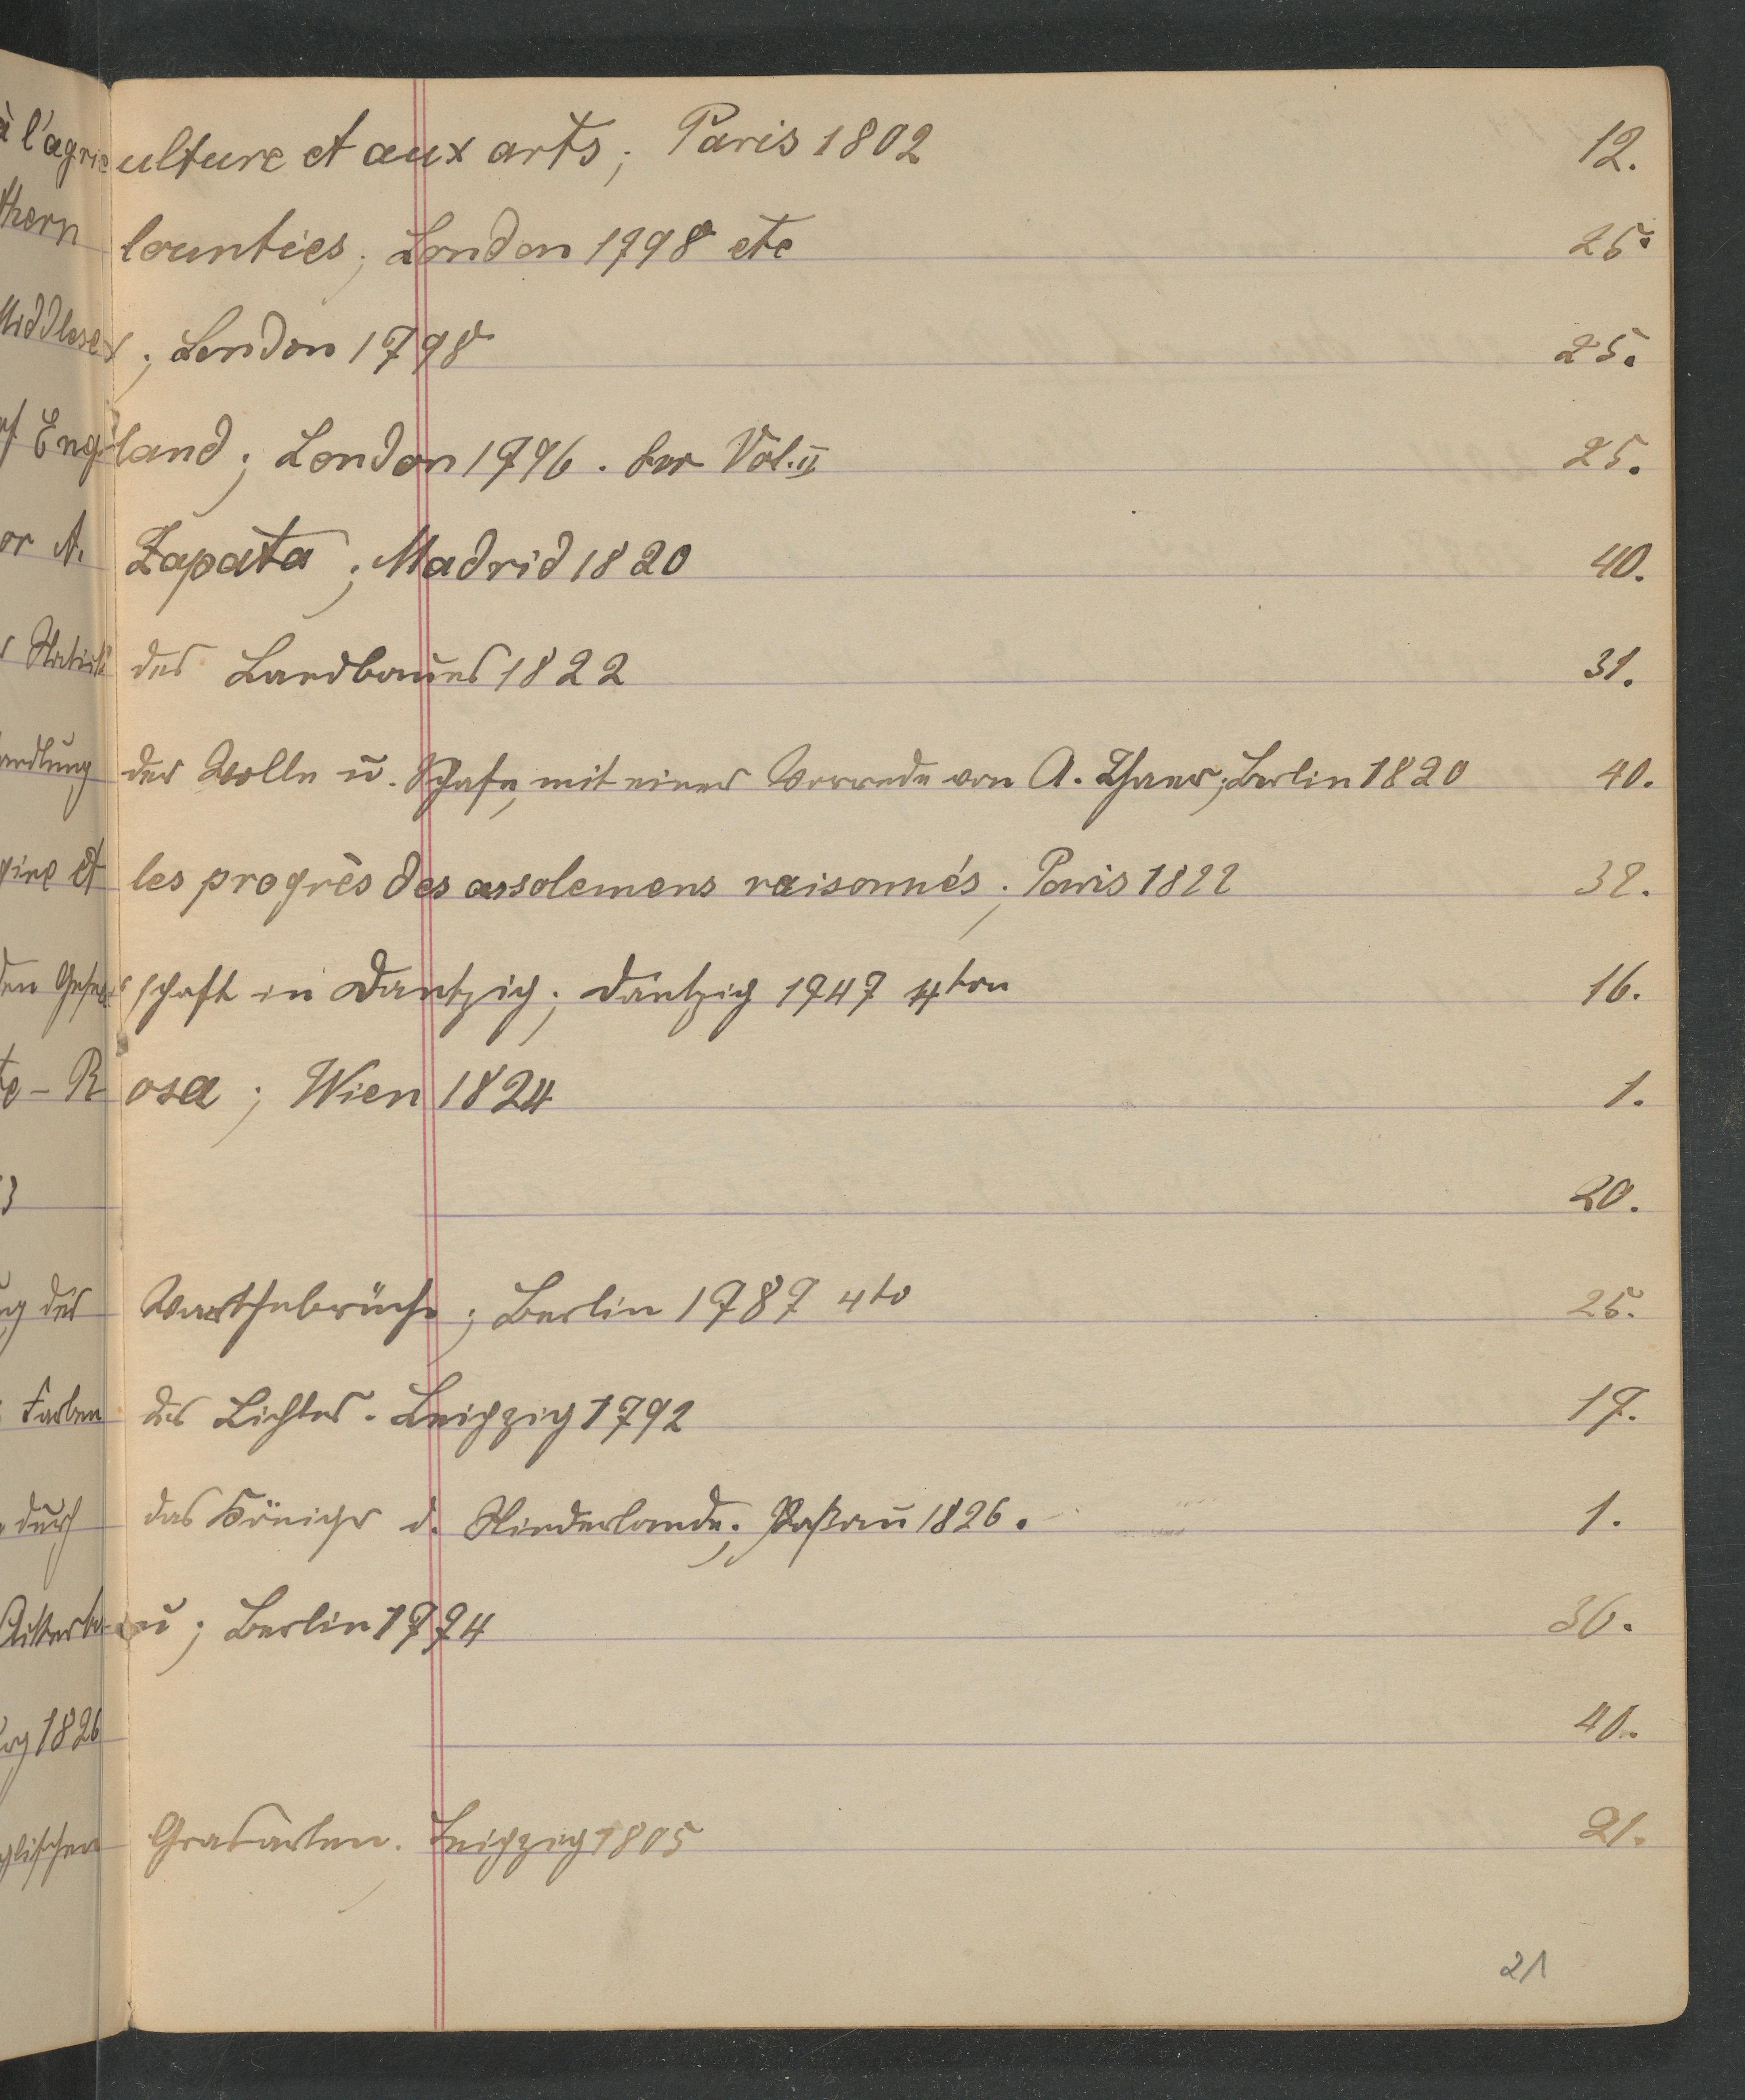 à l'agriculture et aux arts; Paris 1802 12.
thern Counties; London 1798 etc 25.
Middlesex; London 1798 25.
of England; London 1796. Vol. II 25.
or A. Zapata; Madrid 1820 40.
des Landbaues 1822 31.
andlung der Wolle u. Schafe, mit einer Vorrede von A. Thaer; Berlin 1820 40.
gine et les progrès des assolemens raisonnés; Paris 1822 32.
den Gesellschaft in Dantzig; Dantzig 1747 4ten 16.
te-Rosa; Wien 1824 1.
3 20.
ng des Warthebrüche; Berlin 1787 4to 25.
Farben des Lichtes. Leipzig 1792 17.
durch das Königr d. Niederlande; Passau 1826. 1.
Ackerbau; Berlin 1774 36.
1826 40.
glischen Grasarten. Leipzig 1805 21.
21